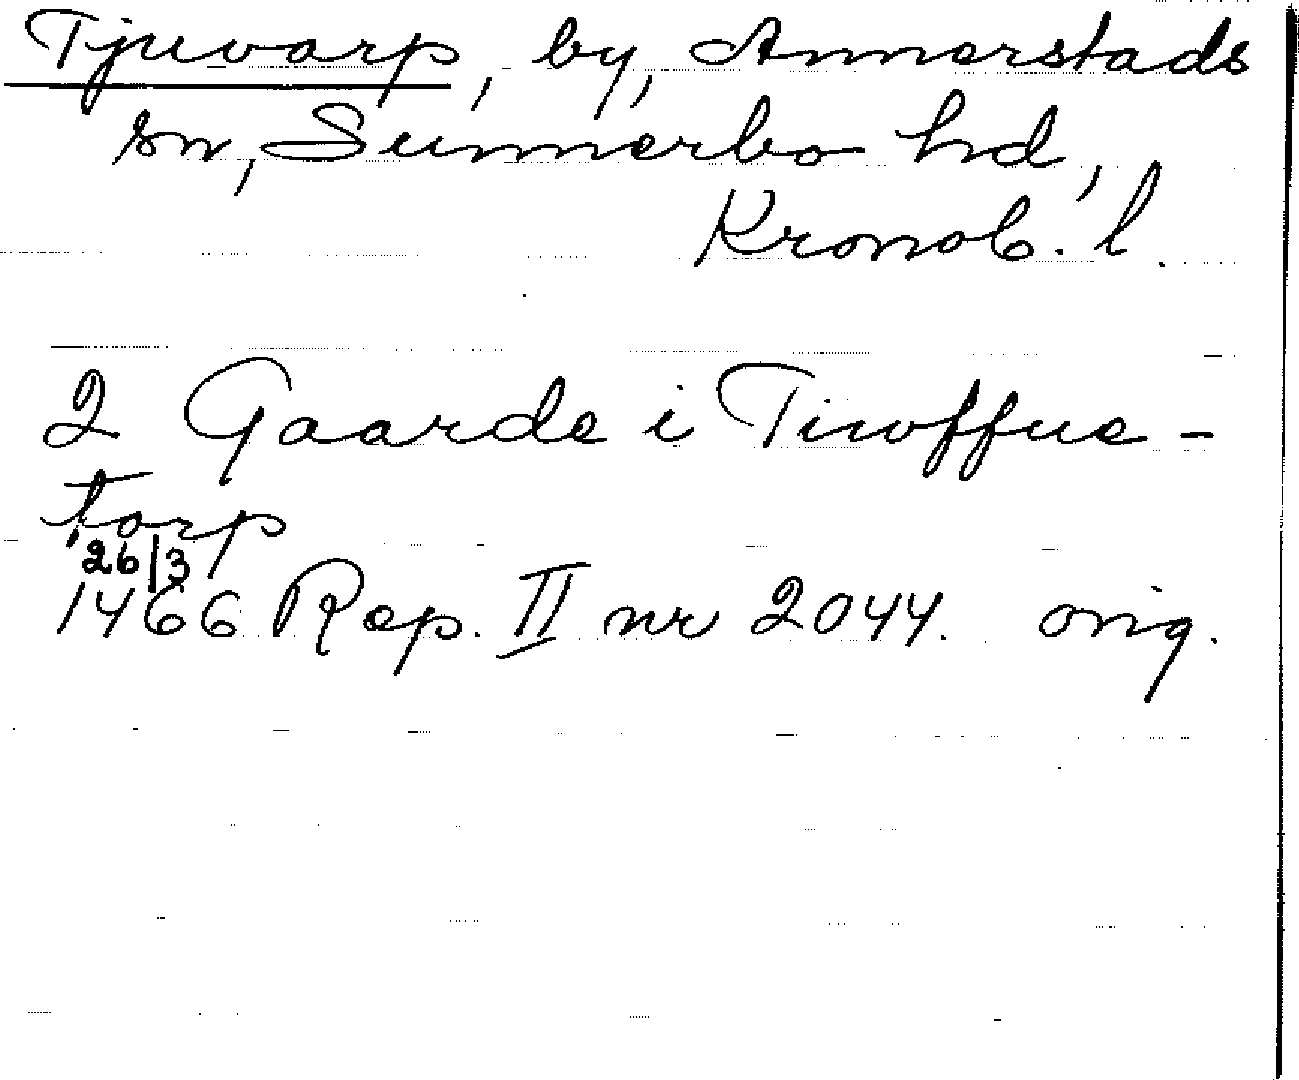 Tjuvarp, by, Annerstads
sn, Sunnerbo hd,
Kronob. l.
2 Gaarde i Tiwffue-
torp
26/3
1466 Rep. II nr 2044. orig.